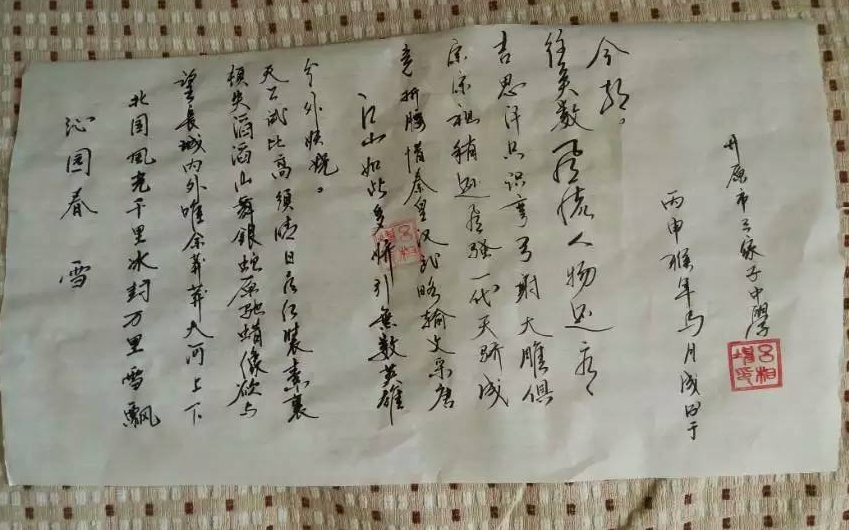 沁园春 雪
北国风光千里冰封万里雪飘
望长城内外唯余莽莽大河上下
顿失滔滔山舞银蛇原驰蜡像欲与
天公试比高须晴日看红装素裹
分外妖娆。
江山如此多娇引無数英雄
竞折腰惜秦皇汉武略输文采唐
宗宋祖稍逊风骚一代天骄成
吉思汗只识弯弓射大雕俱
往矣数风流人物还看
今朝。
丙申猴年马月戌日于
开原市三家子中學
吕相印